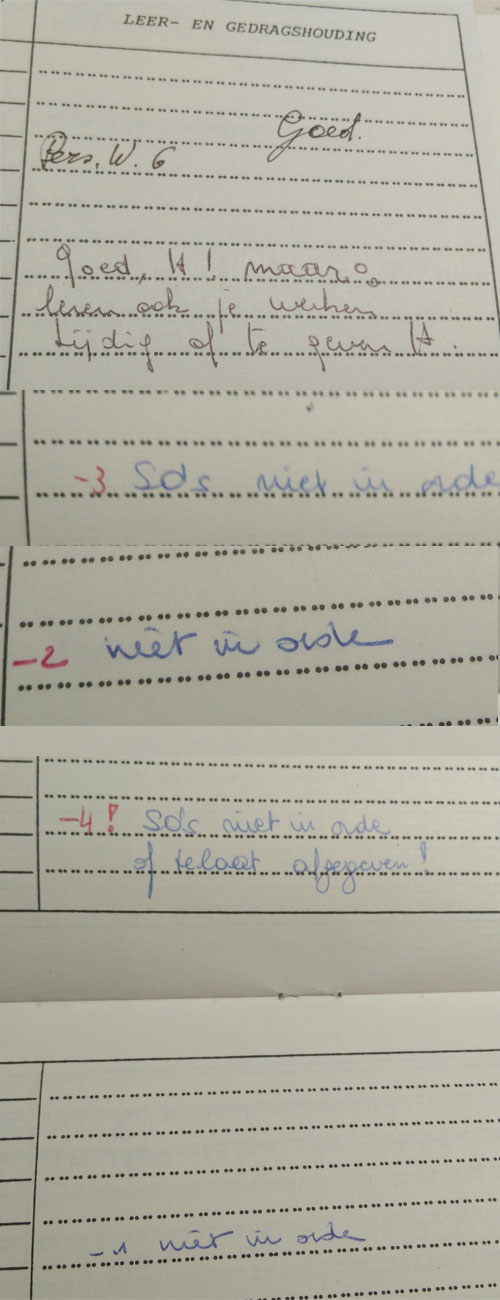 LEER- EN GEDRAGSHOUDING
Goed.
Pers. W. 6
Goed, H! maar
leren ook je werken
tijdig af te geven H.
-3 SO's niet in orde
-2 niet in orde
-4! SO's niet in orde
of telaat afgegeven!
-1 niet in orde